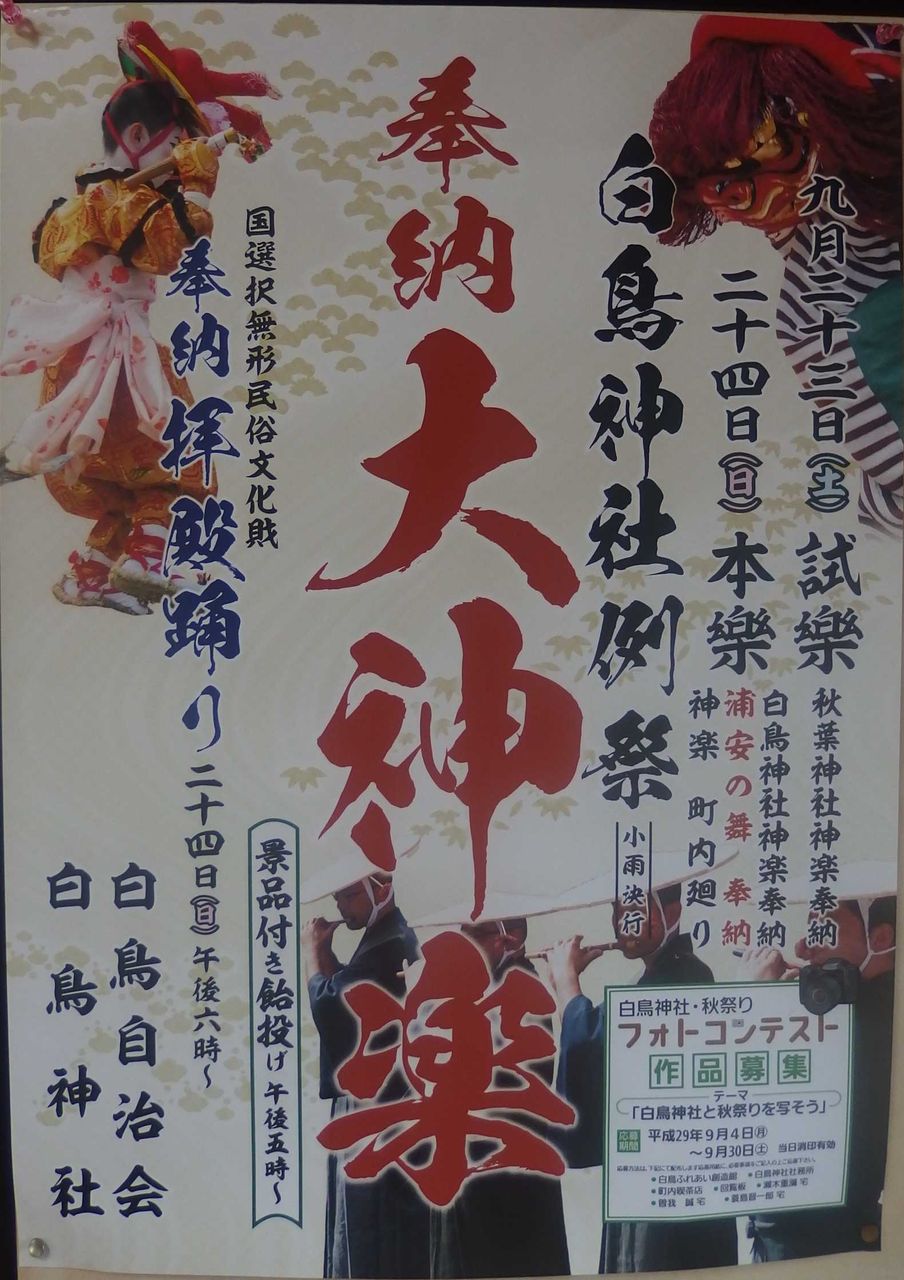 九月二十三日(土)試樂
秋葉神社神楽奉納
白鳥神社神楽奉納
二十四日(日)本樂
浦安の舞 奉納
神楽 町内廻り
白鳥神社例祭
小雨決行
奉納大神楽
国選択無形民俗文化財
奉納拝殿踊り二十四日(日)午後六時～
景品付き飴投げ午後五時～
白鳥自治会
白鳥神社
白鳥神社・秋祭り
フォトコンテスト
作品募集
テーマ
「白鳥神社と秋祭りを写そう」
応募期間
平成29年9月4日(月)
～9月30日(土) 当日消印有効
•白鳥ふれあい創造館 •白鳥神社社務所
•町内喫茶店 •回覧板
•曽我 誠 宅